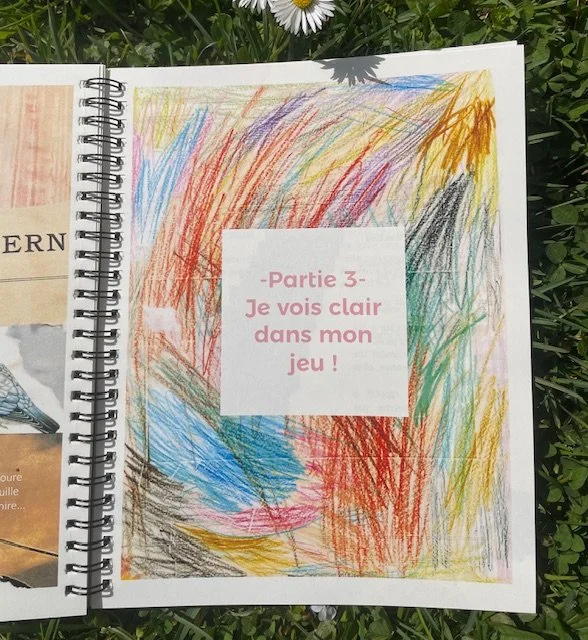 ERN
oure
uille
-Partie 3-
Je vois clair
dans mon
jeu !